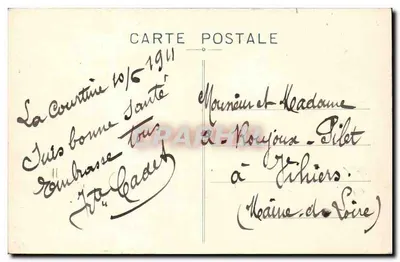 CARTE POSTALE
La Courtine 10/6 1911
Suis bonne santé
Embrasse Tous
Cadet
Monsieur et Madame
Poujoux - Pilet
à Vihiers.
(Maine-de-Loire)